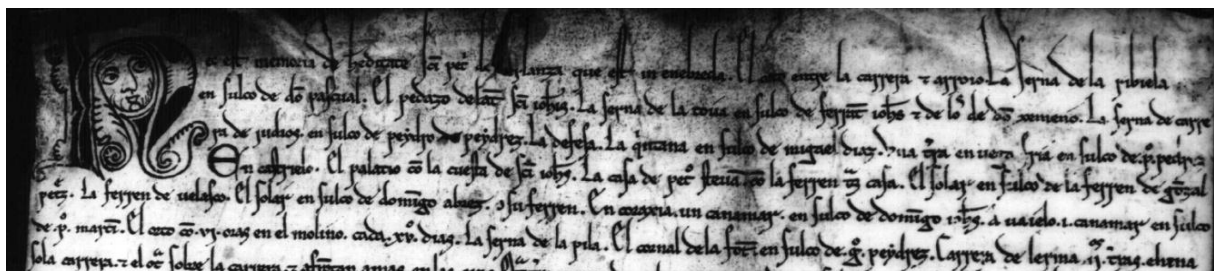 est memoria de hereditate sci pet de aslanza que est in enebreda. El orto entre la carrera ⁊ arroyo. La serna de la ribiela
en sulco de do pascual. El pedazo delant sci iohs. La serna de la toua en sulco de ferrant iohs ⁊ de lo de do xemeno. La serna de carre
ra de judios. en sulco de peydro peydrez. La defesa. La qintana en sulco de miguel diaz. en sulco de p. pedrez
En castrielo. El palatio co la cuesta de sci iohs. La casa de pet steuan. co la ferren tras casa. El solar en sulco de la ferren de gonzal
petz. La ferren de uelasco. El solar en sulco de domingo abbez. su ferren. En coraxia. un canamar. en sulco de domingo iohs. a uaielo .i. canamar en sulco
de p. marti. El orto co .vi. oras en el molino. cada .xv. dias. La serna de la pila. El cornal dela fot. en sulco de g. peydrez. Carrera de lerma .ii. tras. el una
sola carrera. ⁊ el otra sobre la carrera. ⁊ amas en